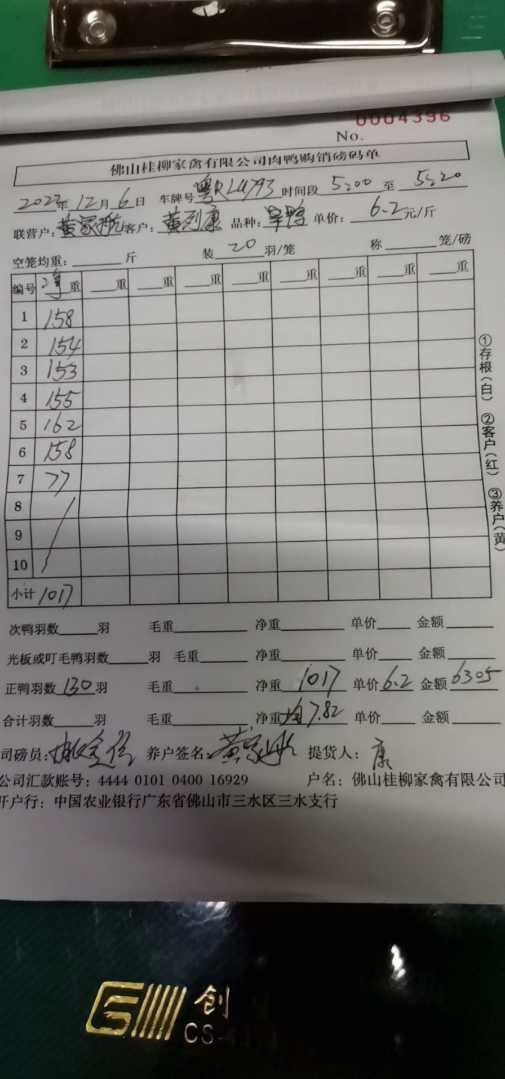 0004396
No.
佛山桂柳家禽有限公司肉鸭购销磅码单
2022年12月6日 车牌号 粤RL4793 时间段 5:00 至 5:20
联营户: 黄家 客户: 黄列康 品种: 旱鸭 单价: 6.2元/斤
空笼均重: 斤 装 20 羽/笼 称 笼/磅
编号 净重 重 重 重 重 重 重 重 重
1 158
2 154
3 153
4 155
5 162
6 158
7 77
8
9
10
小计 1017
①存根(白) ②客户(红) ③养户(黄)
次鸭羽数 羽 毛重 净重 单价 金额
光板或叮毛鸭羽数 羽 毛重 净重 单价 金额
正鸭羽数 130 羽 毛重 净重 1017 单价 6.2 金额 6305
合计羽数 羽 毛重 净重 均7.82 单价 金额
司磅员: 养户签名: 黄 提货人: 康
公司汇款账号: 4444 0101 0400 16929 户名: 佛山桂柳家禽有限公司
开户行: 中国农业银行广东省佛山市三水区三水支行
创
CS-